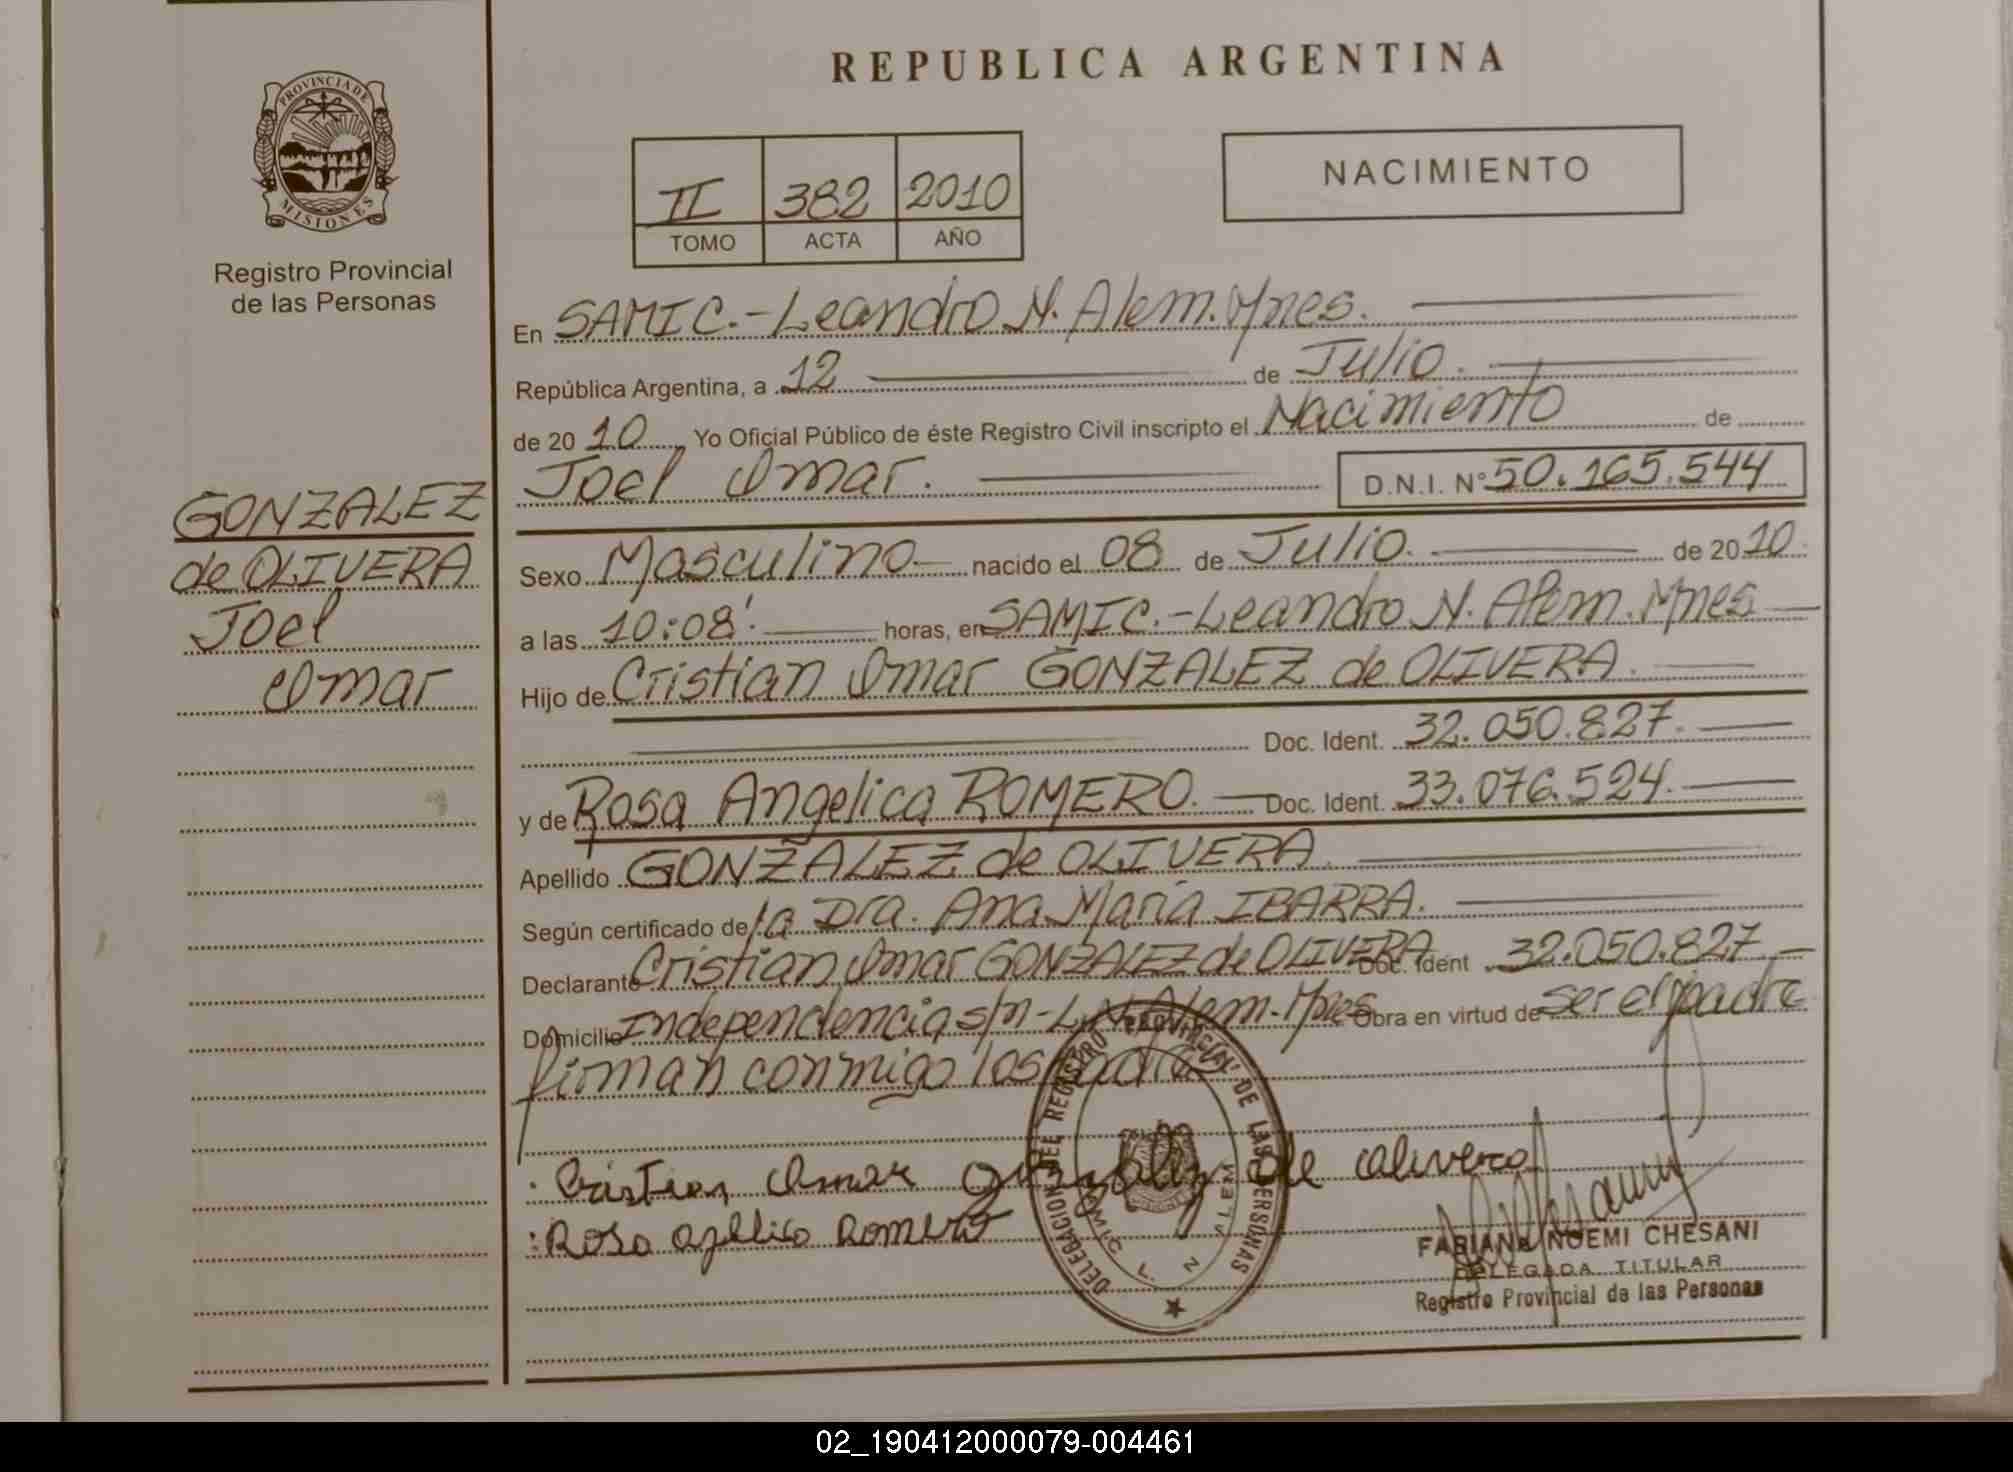 REPUBLICA ARGENTINA
PROVINCIA DE
MISIONES
Registro Provincial
de las Personas
II 382 2010
TOMO ACTA AÑO
NACIMIENTO
GONZALEZ
de OLIVERA
Joel
Omar
En SAMIC.-Leandro N. Alem. Mnes.
República Argentina, a 12 de Julio.
de 20 10 Yo Oficial Público de éste Registro Civil inscripto el Nacimiento de
Joel Omar. D.N.I. Nº 50.165.544
Sexo Masculino nacido el 08 de Julio. de 20 10
a las 10:08' horas, en SAMIC.-Leandro N. Alem. Mnes
Hijo de Cristian Omar GONZALEZ de OLIVERA.
Doc. Ident. 32.050.827.
y de Rosa Angelica ROMERO. Doc. Ident. 33.076.524.
Apellido GONZALEZ de OLIVERA.
Según certificado de la Dra. Ana María IBARRA.
Declarante Cristian Omar GONZALEZ de OLIVERA Doc. Ident 32.050.827
Domicilio Independencia s/n-L.N.Alem-Mnes Obra en virtud de ser el padre
firman conmigo los
Cristian Omar Gonzalez de Olivera
Rosa Romero
DELEGACION DEL REGISTRO PROVINCIAL DE LAS PERSONAS
SAMIC L. N ALEM
FABIANA NOEMI CHESANI
DELEGADA TITULAR
Registro Provincial de las Personas
02_190412000079-004461